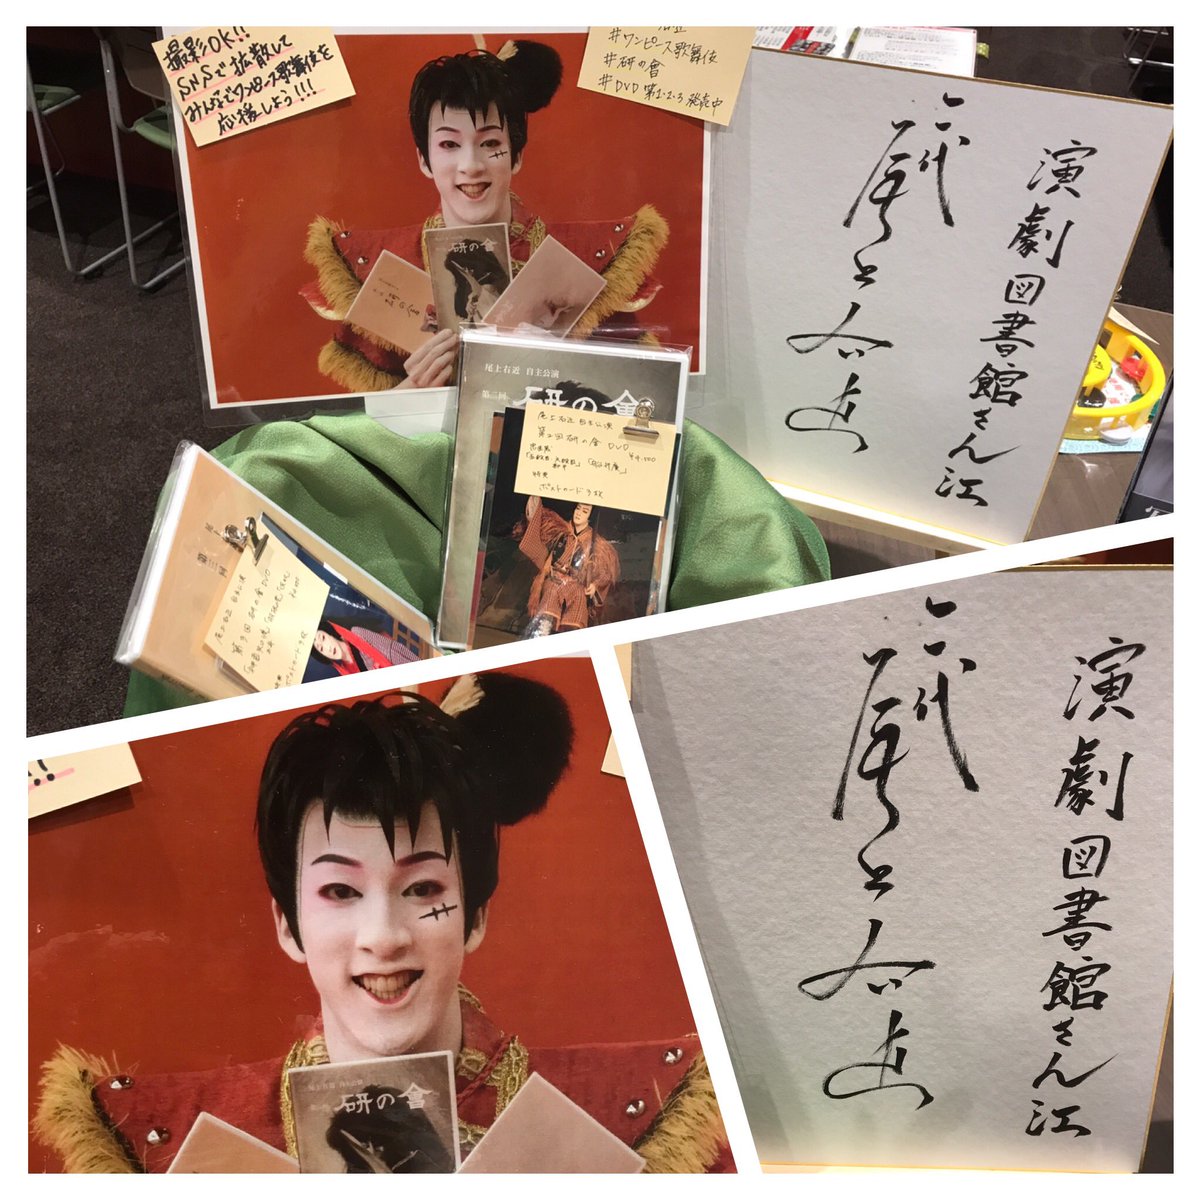 撮影OK!!
SNSで拡散して
みんなでワンピース歌舞伎を
応援しよう!!!
#ワンピース歌舞伎
#研の會
#DVD 第1・2・3発売中
研の會
尾上右近 自主公演
第二回 研の會
尾上右近 自主公演
第2回 研の會 DVD
特典
ポストカード
第三回
尾上右近 自主公演
第3回 研の會 DVD
演劇図書館さん江
六代
尾上右近
研の會
演劇図書館さん江
六代
尾上右近